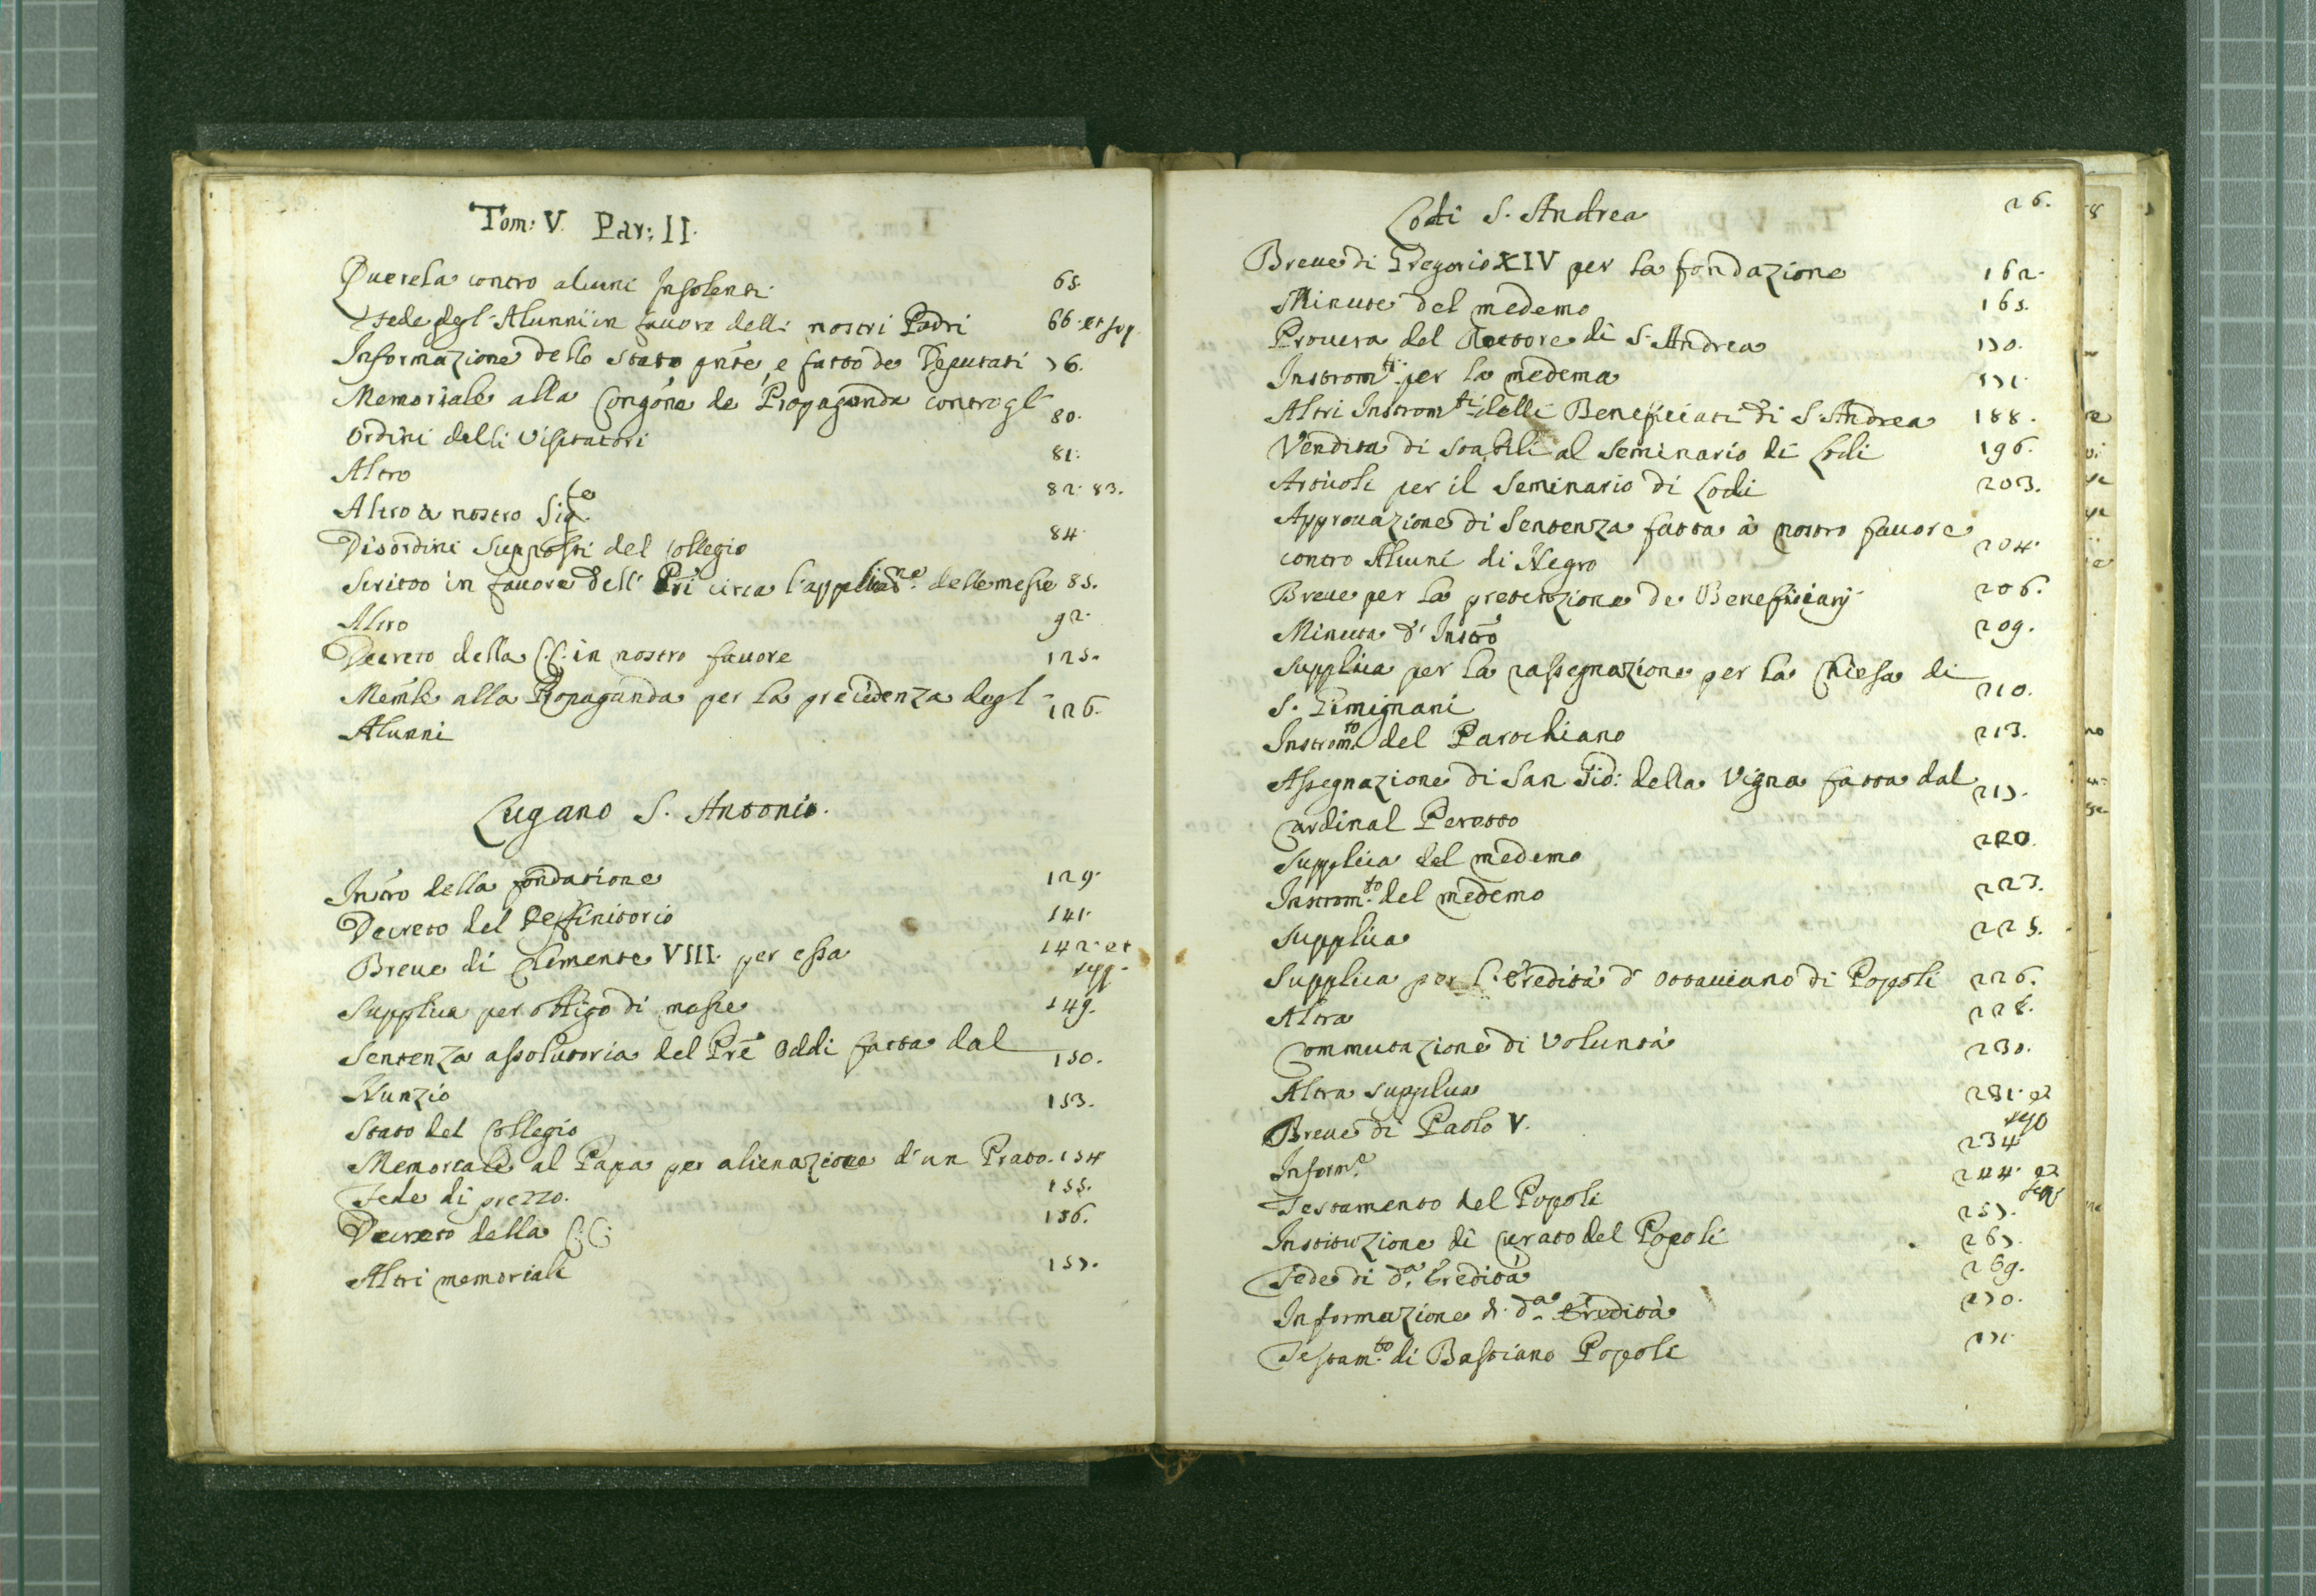 Tom: V. Par: II.
Querela contro alcuni Insolenti 65.
Fede degl'Alunni in favore delli nostri Padri 66. et seq.
Informazione dello stato pnte, e fatto de Deputati 76.
Memoriale alla Congōne de Propaganda contro gl' 80.
ordini delli Visitatori
Altro 81.
Altro a nostro Sigre. 82. 83.
Disordini supposti del Collegio 84.
Scritto in favore dell' Pri circa l'applicasne. delle messe 85.
Altro 92.
Decreto della C.C. in nostro favore 125.
Memle alla Propaganda per la precedenza degl' 126.
Alunni
Lugano S. Antonio.
Instro della fondatione 129.
Decreto del Deffinitorio 141.
Breve di Clemente VIII. per essa 142. et
seqq.
Supplica per obligo di messe 149.
Sentenza assolutoria del Pre Oddi fatta dal 150.
Nunzio
Stato del Collegio 153.
Memoriale al Papa per alienazione d'un Prato. 154
Fede di prezzo. 155.
Decreto della C.C. 156.
Altri memoriali 157.
Lodi S. Andrea 26.
Breve di Gregorio XIV per la fondazione 162.
Minute del medemo 165.
Provera del Rettore di S. Andrea 170.
Instromti. per la medema 171.
Altri Instromti delli Beneficiati di S. Andrea 188.
Vendita di stabili al Seminario di Lodi 196.
Articoli per il Seminario di Lodi 203.
Approvazione di Sentenza fatta à nostro favore 204.
contro Alcuni di Negro
Breve per la pretenzione de Beneficiarij 206.
Minuta d' Instrō 209.
Supplica per la rassegnazione per la Chiesa di 210.
S. Gimignani
Instromto del Parochiano 213.
Assegnazione di San Gio: della Vigna fatta dal 217.
Cardinal Peretto
Supplica del medemo 220.
Instromto. del medemo 223.
Supplica 225.
Supplica per l'Eredità d' Ottaviano di Popoli 226.
Altra 228.
Commutazione di Voluntà 230.
Altra supplica 231. et
seqq
Breve di Paolo V. 234
Informe. 244. et
seqq
Testamento del Popoli 257.
Instituzione di Curato del Popoli 267.
Fede di da. Eredità 269.
Informazione di da. Eredità 270.
Testamto. di Bastiano Popoli 271.